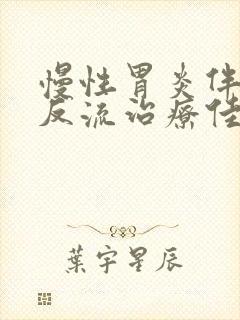 慢性胃炎伴
反流治疗佳
葉宇星辰